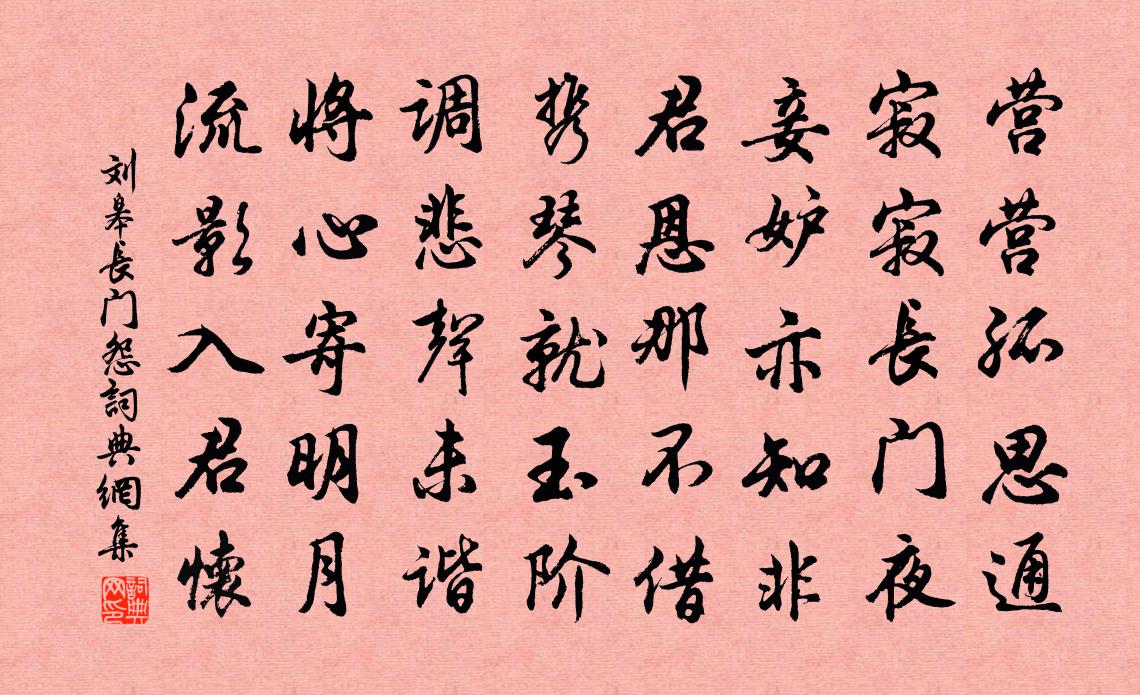 营营孤思通
寂寂長门夜
妾妒亦知非
君恩那不借
携琴就玉阶
调悲聲未谐
将心寄明月
流影入君懷
刘皋長门怨詞典網集
詞典网印